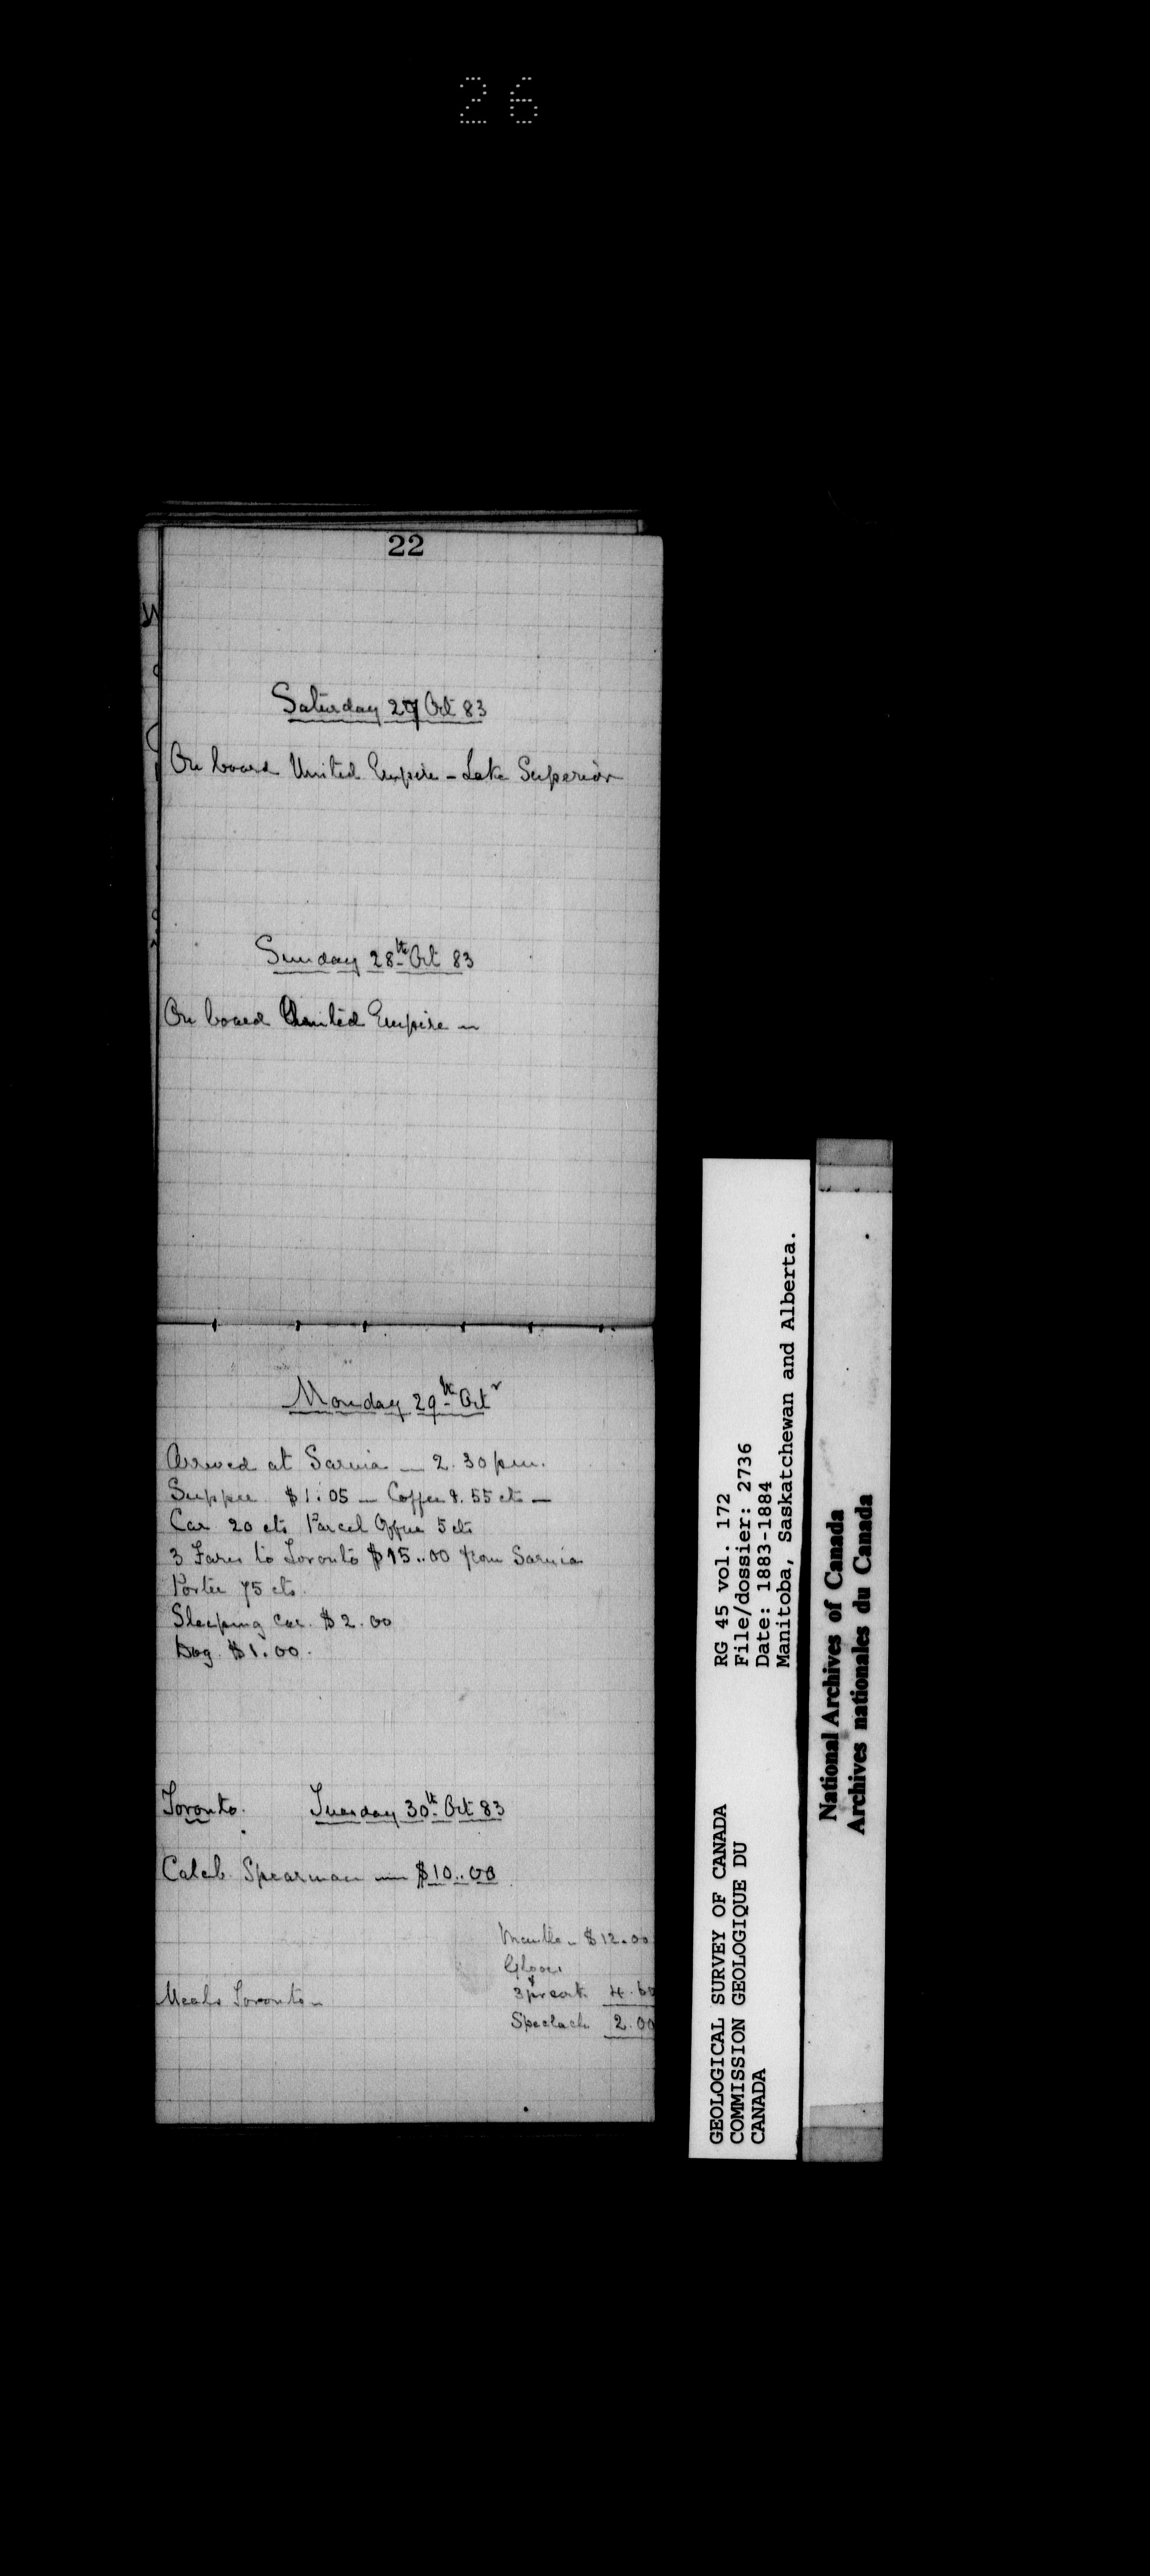 26
22
Saturday 27 Oct 83
On board United Empire - Lake Superior
Sunday 28th Oct 83
On board United Empire -
Monday 29th Octr
Arrived at Sarnia - 2.30 pm.
Supper $1.05 - Coffee &. 55 cts -
Car 20 cts Parcel Office 5 cts
3 Fares to Toronto $15..00 from Sarnia
Porter 75 cts.
Sleeping Car. $2.00
Dog. $1.00.
Toronto. Tuesday 30th Oct 83
Caleb Spearman - $10..00
Mantle - $12.00
Gloves
&
3 pr 4.60
Meals Toronto -
Spectacle 2.00
RG 45 vol. 172
File/dossier: 2736
Date: 1883-1884
Manitoba, Saskatchewan and Alberta.
GEOLOGICAL SURVEY OF CANADA
COMMISSION GEOLOGIQUE DU
CANADA
National Archives of Canada
Archives nationales du Canada